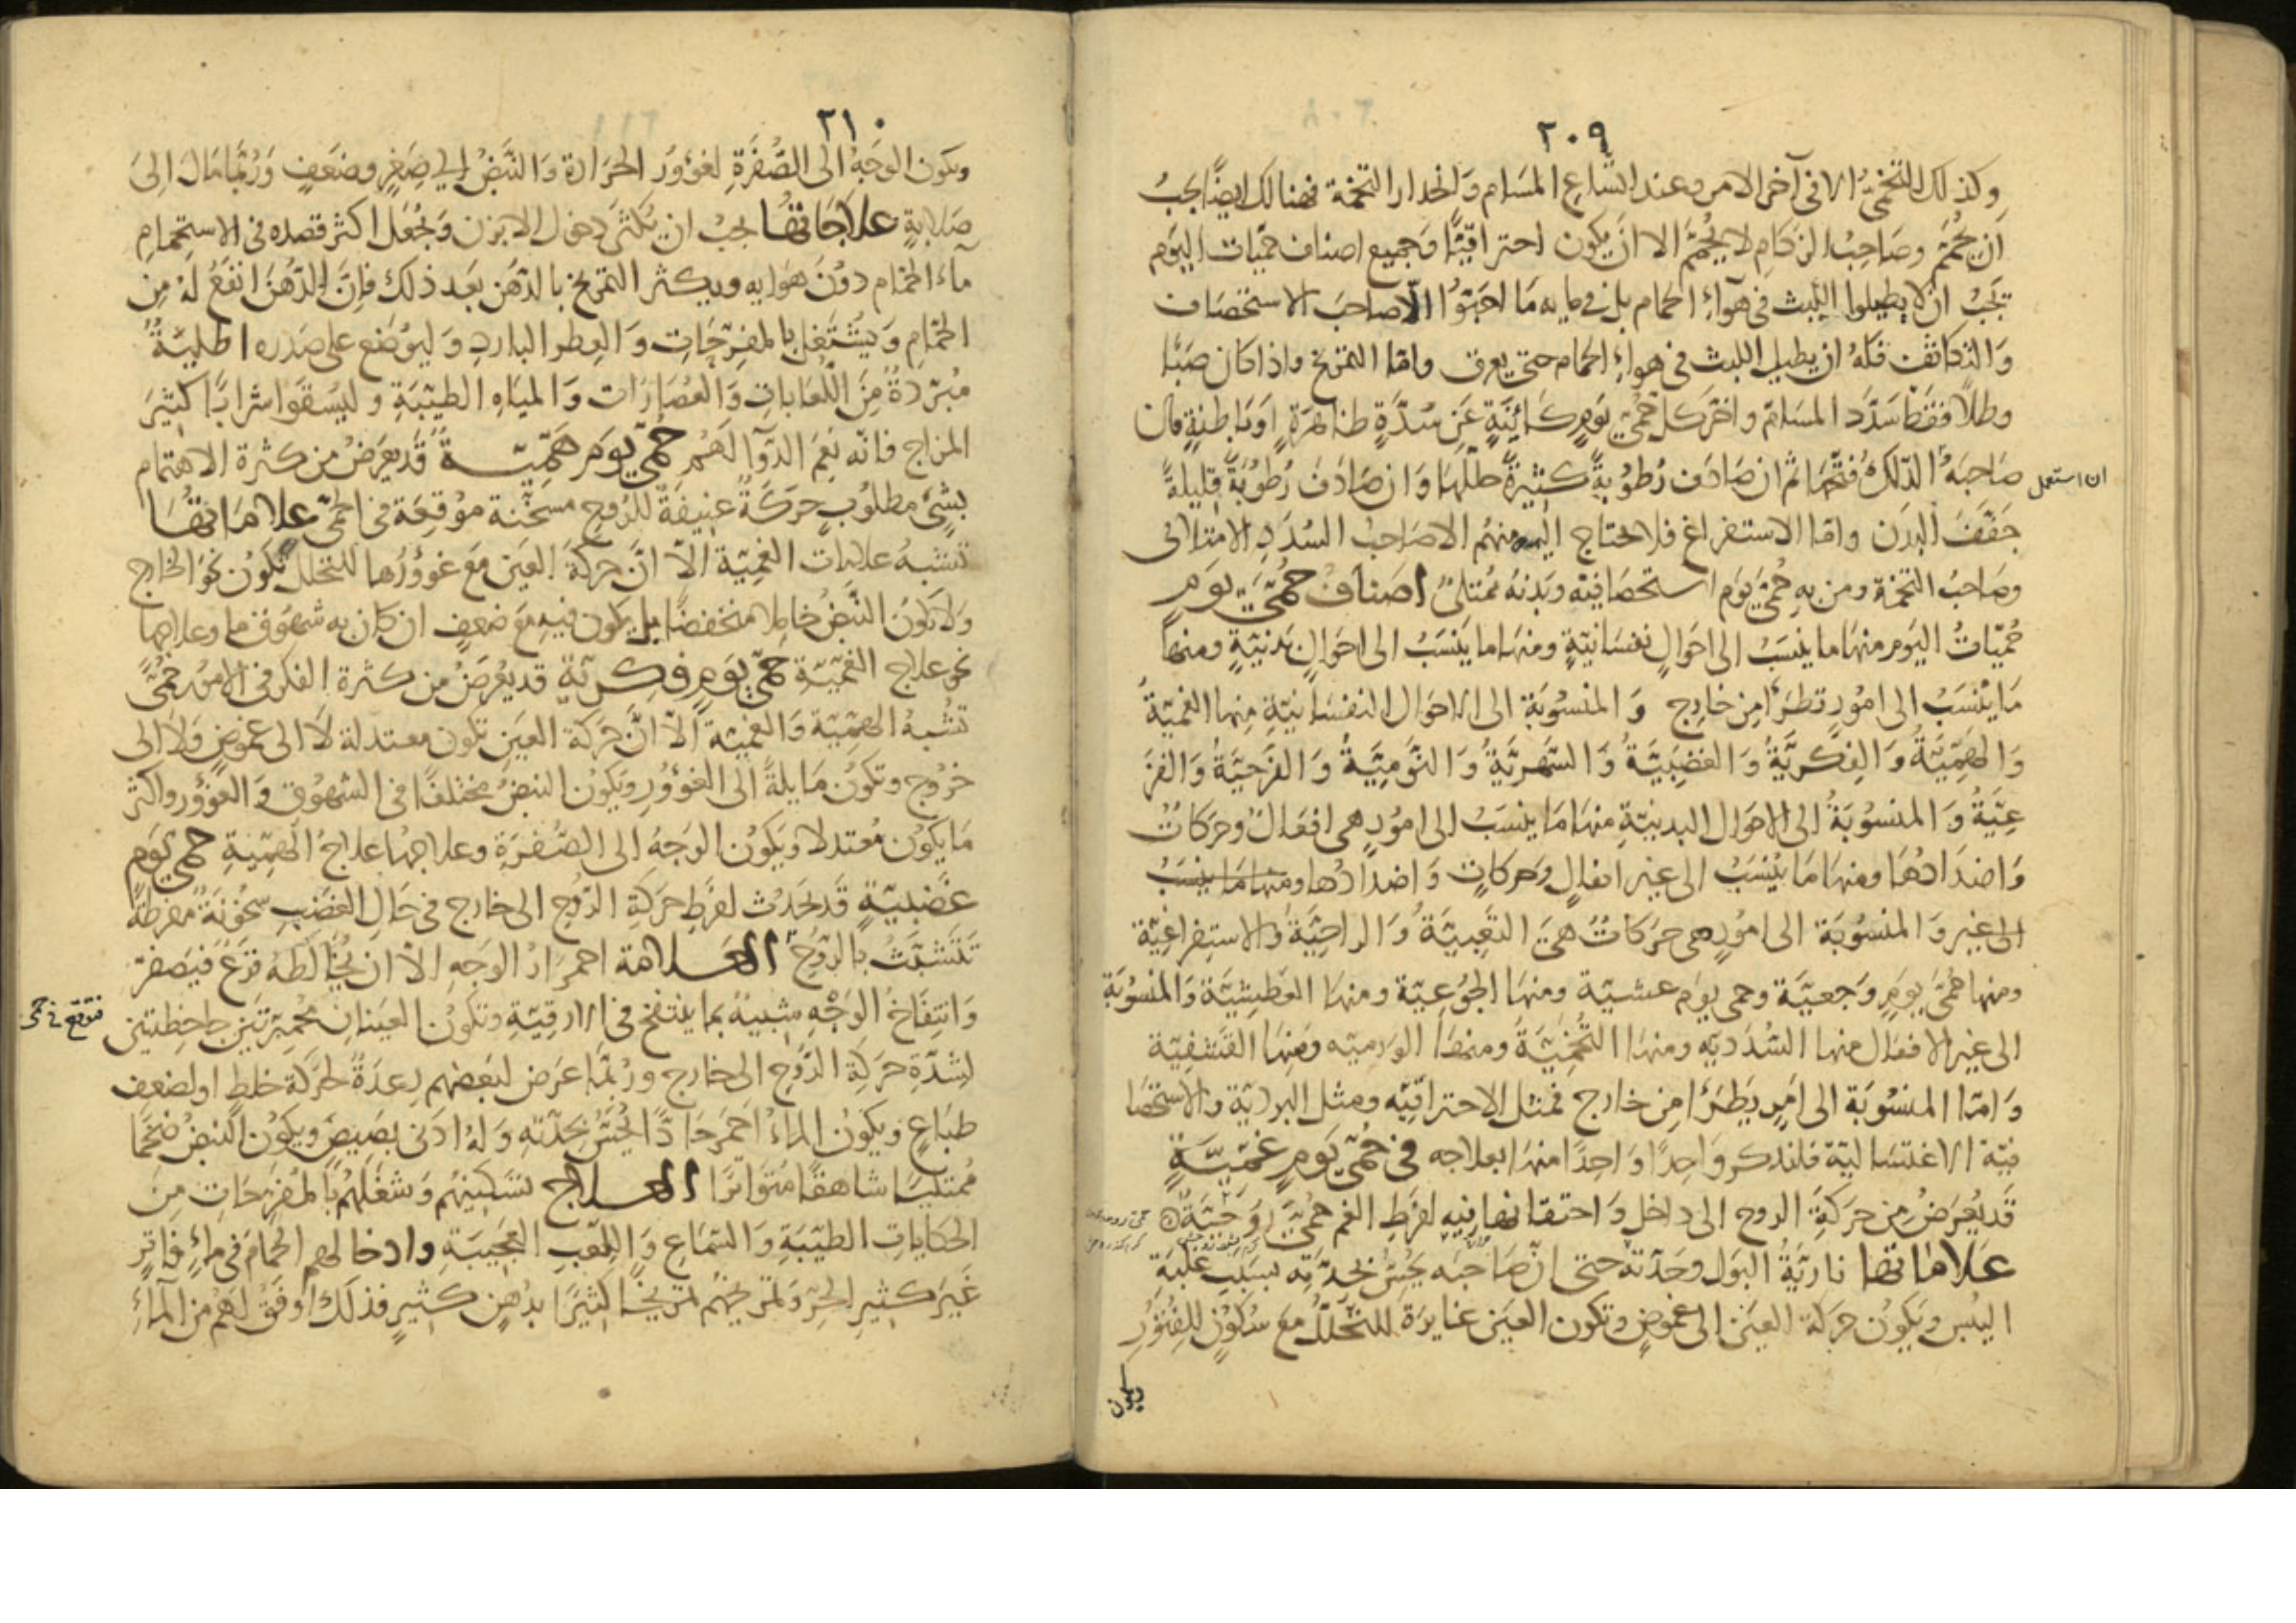 ٢٠٩
وكذلك التخمي الا في آخر الامر وعند اتساع المسام وانحدار التخمة فهنالك ايضا يجب
ان يحم وصاحب الزكام لا يحم الا ان يكون احتراقيا وجميع اصناف حميات اليوم
يجب ان لا يطيلوا اللبث في هوآء الحمام بل في مايه ما احبوا الا صاحب الاستحصاف
والتكاثف فله ان يطيل اللبث في هواء الحمام حتى يعرق واما التمريخ واذا كان صبا
وطلاً فقط سدد المسام واخر كل حمى يوم كائنة عن سدة ظاهرة او باطنة فان
ان استعمل
صاحبه الدلك فتحها ثم ان صادف رطوبة كثيرة حللها وان صادف رطوبة قليلة
جفف البدن واما الاستفراغ فلا يحتاج اليه منهم الا صاحب السدد الامتلائى
وصاحب التخمة ومن به حمى يوم استحصافية وبدنه ممتلئ اصناف حمى يوم
حميات اليوم منها ما ينسب الى احوال نفسانية ومنها ما ينسب الى احوال بدنية ومنها
ما ينسب الى امور تطرأ من خارج والمنسوبة الى الاحوال النفسانية منها الغمية
والهمية والفكرية والغضبية والسهرية والنومية والفرحية والفز
عية والمنسوبة الى الاحوال البدنية منها ما ينسب الى امور هى افعال وحركات
واضدادها ومنها ما ينسب الى غير افعال وحركات واضدادها ومنها ما ينسب
الى غير والمنسوبة الى امور هى حركات هى التعبية والراحية والاستفراغية
ومنها حمى يوم وجعية وحمى يوم عشية ومنها الجوعية ومنها العطشية والمنسوبة
الى غير الافعال منها السددية ومنها التخمية ومنها الورمية ومنها القشفية
واما المنسوبة الى امر يطرأ من خارج فمثل الاحتراقية ومثل البردية والاستحصا
فية الاغتسالية فلنذكر واحدا واحدا منها بعلاجه في حمى يوم غمية
قد يعرض من حركة الروح الى داخل واحتقانها فيه لفرط الغم حمى روحية
علاماتها نارية البول وحدته حتى ان صاحبه يحس بحدته بسبب غلبة
اليبس ويكون حركة العين الى غموض وتكون العين غايرة للتحلل مع سكون للفتور
ويكون
٢١٠
ويكون الوجه الى الصفرة لغؤور الحرارة والنبض الى صغر وضعف وربما مال الى
صلابة علاجاتها يجب ان يكثر دخول الابزن ويجعل اكثر قصده في الاستحمام
مآء الحمام دون هوايه ويكثر التمريخ بالدهن بعد ذلك فان الدهن انفع له من
الحمام ويشتغل بالمفرحات والعطر البارد وليوضع على صدره اطلية
مبردة من اللعابات والعصارات والمياه الطيبة وليسقوا شرابا كثير
المزاج فانه نعم الدوآ لهم حمى يوم همية قد يعرض من كثرة الاهتمام
بشئ مطلوب حركة عنيفة للروح مسخنة موقعة في الحمى علاماتها
تشبه علامات الغمية الا ان حركة العين مع غوورها للتحلل تكون نحو الخارج
ولا يكون النبض خاملا منخفضا بل يكون فيه مع ضعف ان كان به شهوق ما وعلاجها
نحو علاج الغمية حمى يوم فكرية قد يعرض من كثرة الفكر في الامور حمى
تشبه الهمية والغمية الا ان حركة العين تكون معتدلة لا الى غموض ولا الى
خروج وتكون مايلة الى الغؤور ويكون النبض مختلفا في الشهوق والغؤور واكثر
ما يكون معتدلا ويكون الوجه الى الصفرة وعلاجها علاج الهمية حمى يوم
غضبية قد يحدث لفرط حركة الروح الى خارج في حال الغضب سخونة مفرطة
تتشبث بالروح العلامة احمرار الوجه الا ان يخالطه فزع فيصفر
وانتفاخ الوجه شبيه بما ينتفخ في الارقية وتكون العينان محمرتين جاحظتين
لشدة حركة الروح الى خارج وربما عرض لبعضهم رعدة لحركة خلط او لضعف
طباع ويكون الماء احمر حادا يحس بحدته وله ادنى بصيص ويكون النبض ضخما
ممتليا شاهقا متواترا العلاج تسكينهم وشغلهم بالمفرحات من
الحكايات الطيبة والسماع واللعب العجيبة وادخالهم الحمام في ماء فاتر
غير كثير الحر وتمريخهم تمريخا كثيرا بدهن كثير فذلك اوفق لهم من المآء